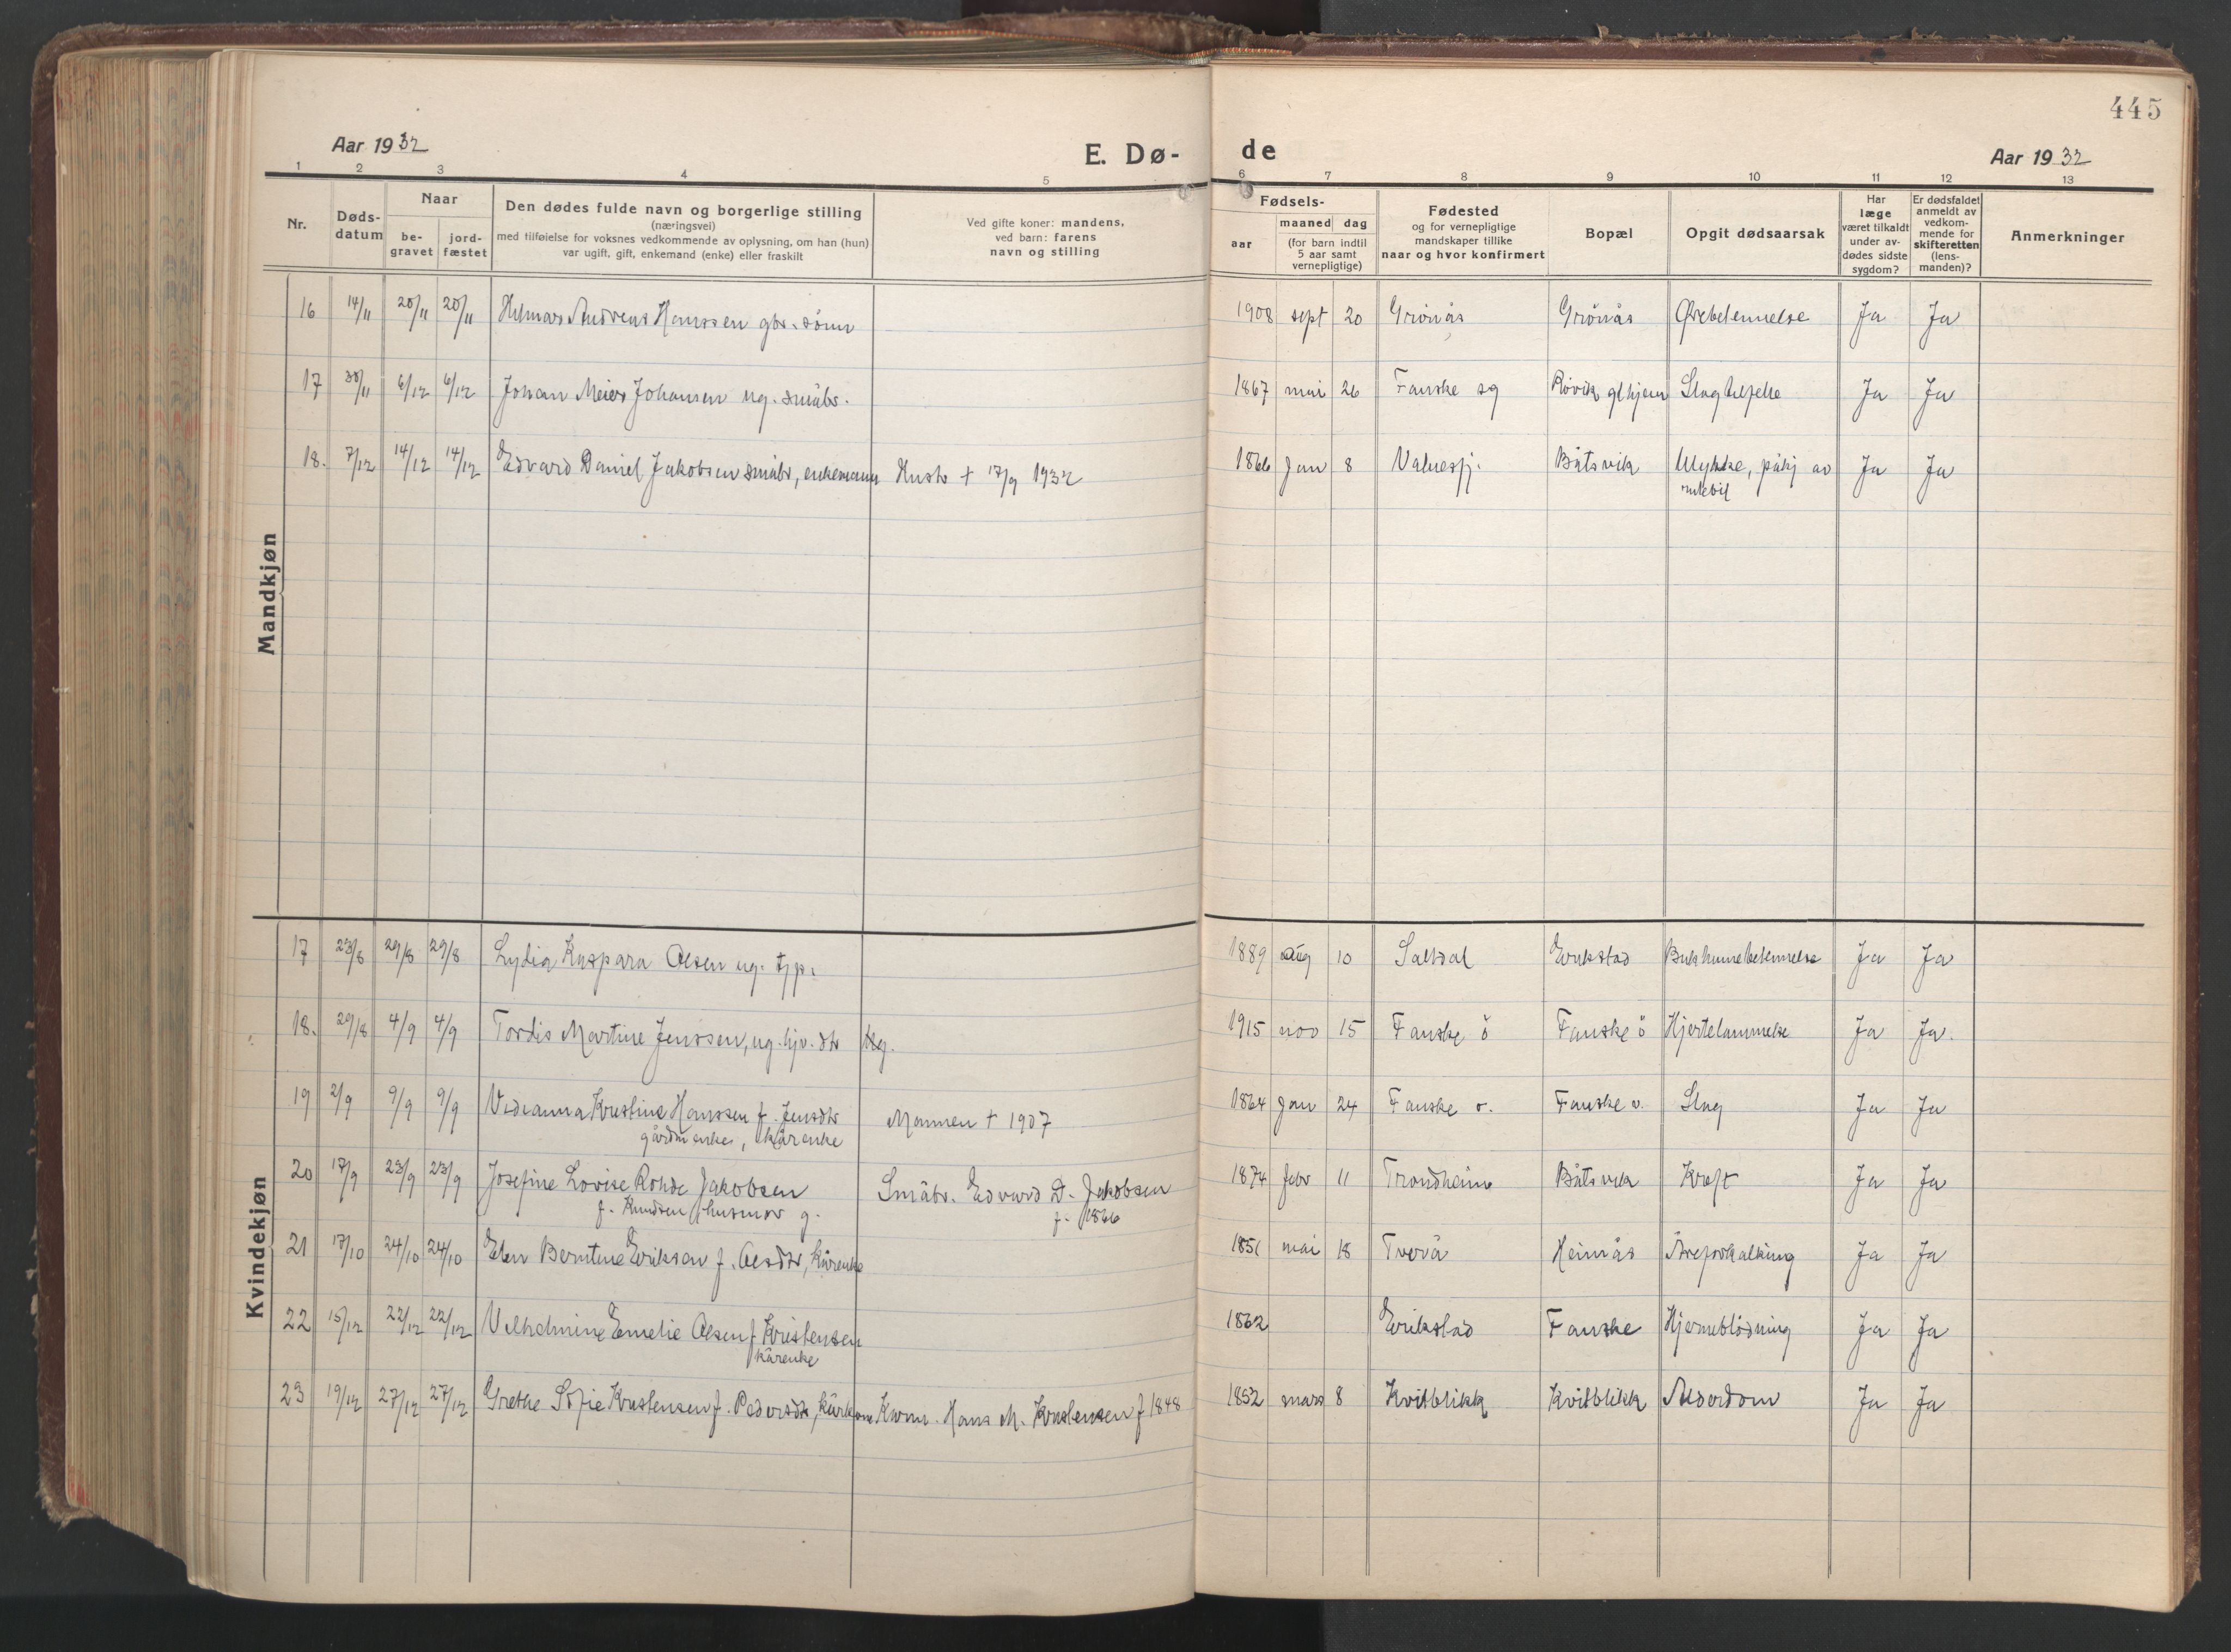 445
Aar 1932
E. Dø-
de
Aar 1932
1 2 3 4 5 6 7 8 9 10 11 12 13
Nr.
Døds-
datum
Naar
be-
gravet
jord-
fæstet
Den dødes fulde navn og borgerlige stilling
(næringsvei)
med tilføielse for voksnes vedkommende av oplysning, om han (hun)
var ugift, gift, enkemand (enke) eller fraskilt
Ved gifte koner: mandens,
ved barn: farens
navn og stilling
Fødsels-
aar
maaned dag
(for barn indtil
5 aar samt
vernepligtige)
Fødested
og for vernepligtige
mandskaper tillike
naar og hvor konfirmert
Bopæl
Opgit dødsaarsak
Har
læge
været tilkaldt
under av-
dødes sidste
sygdom?
Er dødsfaldet
anmeldt av
vedkom-
mende for
skifteretten
(lens-
manden)?
Anmerkninger
Mandkjøn
16 14/11 20/11 20/11 Hilmar Andreas Hanssen gbr. sønn 1908 sept 20 Grönås Grönås Ørebetennelse Ja Ja
17 30/11 6/12 6/12 Johan Meier Johansen ug. småbr. 1867 mai 26 Fauske sg Røvik glhjem Slagtilfelle Ja Ja
18. 7/12 14/12 14/12 Edvard Daniel Jakobsen småbr, enkemann Hustr + 17/9 1932 1866 Jan 8 Valnesfj. Båtsvik Ulykke, påkj av Ja Ja
rutebil
Kvindekjøn
17 23/8 29/8 29/8 Lydia Kaspara Olsen ug. tjp. 1889 aug 10 Saltdal Erikstad Bukhinnebetennelse Ja Ja
18. 29/8 4/9 4/9 Tordis Martine Jenssen, ug. hjv. dtr 1915 nov 15 Fauske ö Fauske ö Hjertelammelse Ja Ja.
19 2/9 9/9 9/9 Vedianna Kristine Hanssen f. Jensdtr Mannen + 1907 1864 Jan 24 Fauske v. Fauske v. Slag Ja Ja
gårdm enke, kårenke
20 17/9 23/9 23/9 Josefine Lovise Rohde Jakobsen Småbr. Edvard D. Jakobsen 1874 febr 11 Trondheim Båtsvik Kreft Ja Ja
f. Knudsen husmor g. f. 1866
21 17/10 24/10 24/10 Elen Berntine Eriksen f. Olsdtr, kårenke 1851 mai 18 Tverå Heimås Åreforkalking Ja Ja
22 15/12 22/12 22/12 Vilhelmine Emelie Olsen f Kristensen 1862 Erikstad Fauske Hjerneblödning Ja Ja
kårenke
23 19/12 27/12 27/12 Grethe Sofie Kristensen f. Pedersdtr, kårkone Kårm. Hans M. Kristensen f 1848 1852 mars 8 Kvitblikk Kvitblikk Alderdom Ja Ja